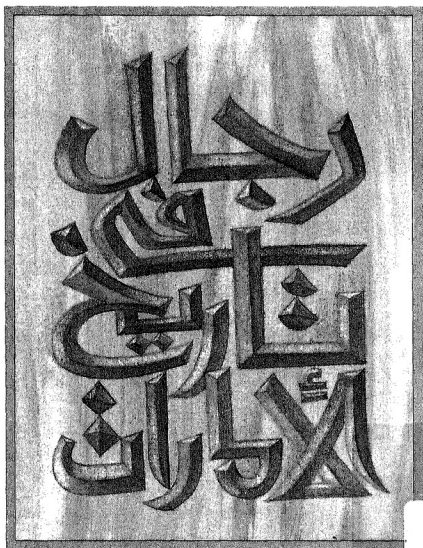 رجال
في
تاريخ
الأمارات